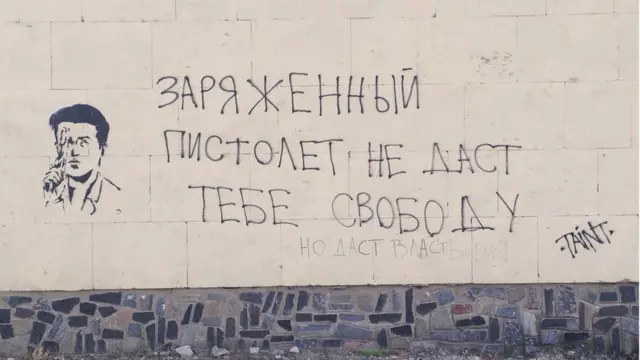 ЗАРЯЖЕННЫЙ
ПИСТОЛЕТ НЕ ДАСТ
ТЕБЕ СВОБОДУ
НО ДАСТ ВЛАСТЬ
TAINT